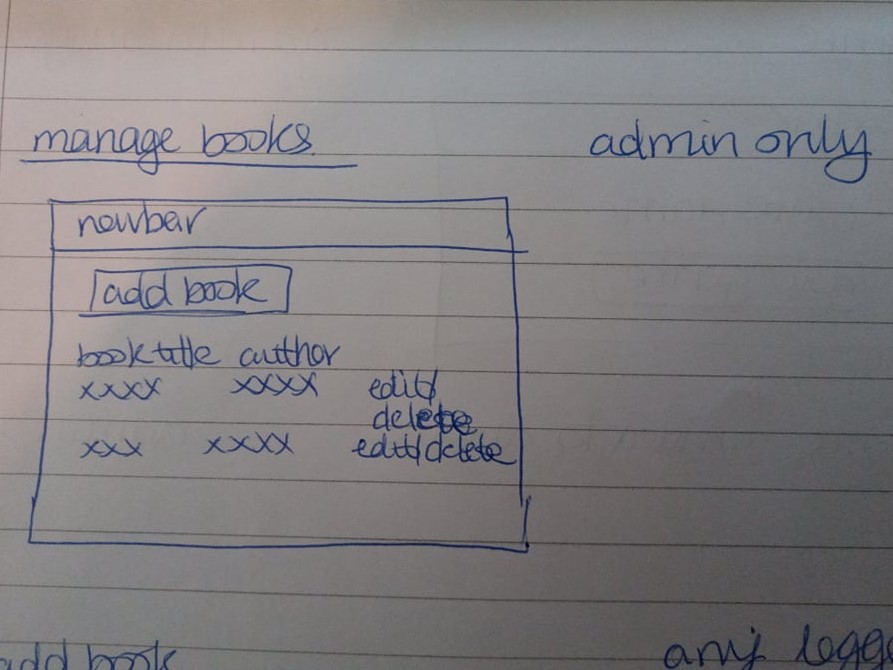 manage books admin only
navbar
add book
book title author
xxxx xxxx edit/
delete
xxx xxxx edit/delete
add book any